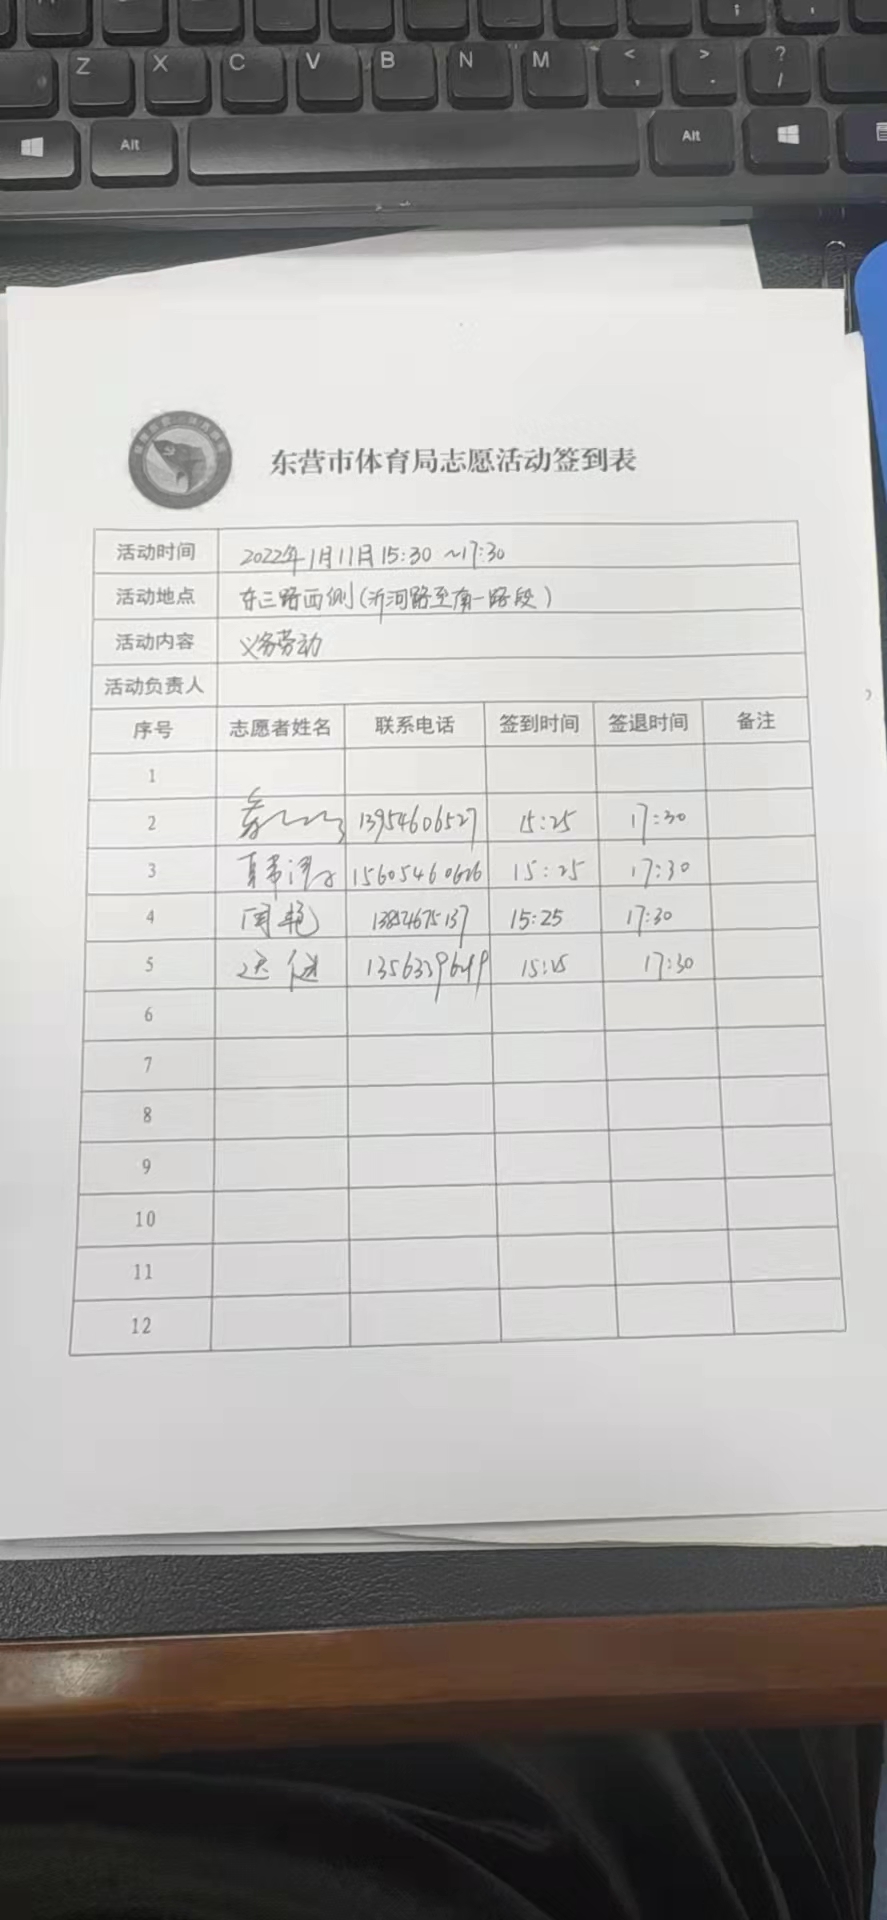 Z X C V B N M < , > . ? /
Alt Alt
东营市体育局志愿活动签到表
活动时间 2022年1月11日15:30~17:30
活动地点 东三路西侧(沂河路至南一路段)
活动内容 义务劳动
活动负责人
序号 志愿者姓名 联系电话 签到时间 签退时间 备注
1
2 13954606527 15:25 17:30
3 15605460626 15:25 17:30
4 闫艳 13854675137 15:25 17:30
5 15:25 17:30
6
7
8
9
10
11
12